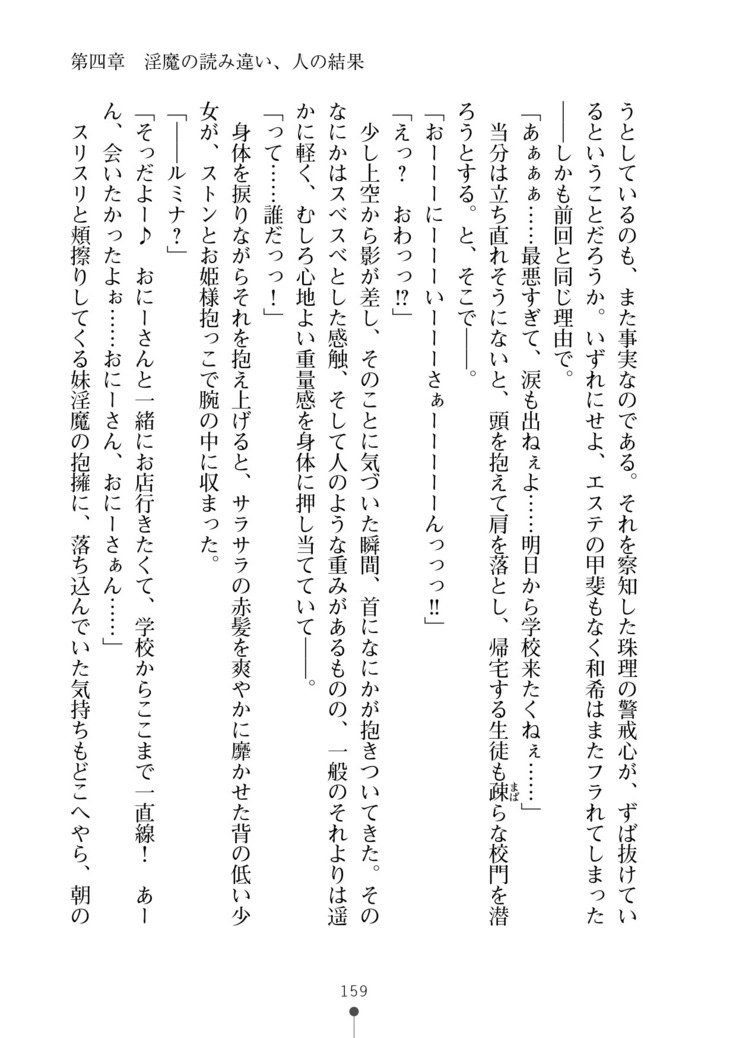 第四章　淫魔の読み違い、人の結果
うとしているのも、また事実なのである。それを察知した珠理の警戒心が、ずば抜けてい
るということだろうか。いずれにせよ、エステの甲斐もなく和希はまたフラれてしまった
――しかも前回と同じ理由で。
「あぁぁぁ……最悪すぎて、涙も出ねぇよ……明日から学校来たくねぇ……」
　当分は立ち直れそうにないと、頭を抱えて肩を落とし、帰宅する生徒も疎らな校門を潜
まば
ろうとする。と、そこで――。
「おーーーにーーーいーーーさぁーーーーーんっっっ!!」
「えっ？　おわっっ!?」
　少し上空から影が差し、そのことに気づいた瞬間、首になにかが抱きついてきた。その
なにかはスベスベとした感触、そして人のような重みがあるものの、一般のそれよりは遥
かに軽く、むしろ心地よい重量感を身体に押し当てていて――。
「って……誰だっっ！」
　身体を捩りながらそれを抱え上げると、サラサラの赤髪を爽やかに靡かせた背の低い少
女が、ストンとお姫様抱っこで腕の中に収まった。
「――ルミナ？」
「そっだよー♪　おにーさんと一緒にお店行きたくて、学校からここまで一直線！　あー
ん、会いたかったよぉ……おにーさん、おにーさぁん……」
　スリスリと頬擦りしてくる妹淫魔の抱擁に、落ち込んでいた気持ちもどこへやら、朝の
159